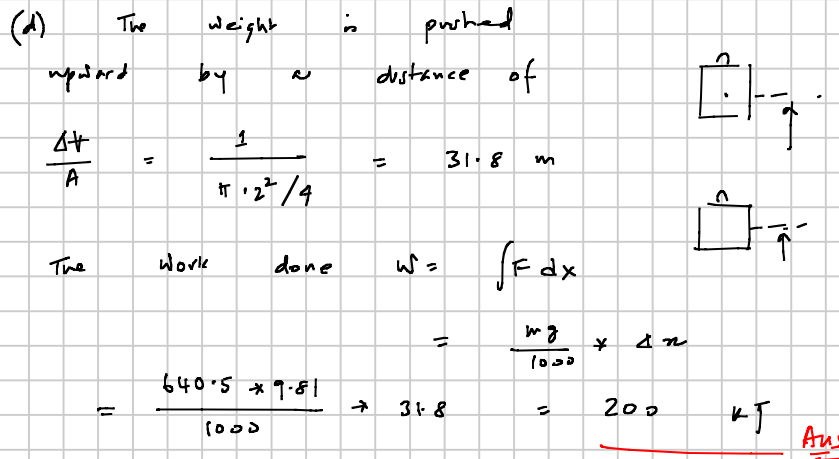 (d) The weight is pushed
upward by a distance of
ΔV/A = 1/(π · 2²/4) = 31.8 m
The Work done W = ∫F dx
= mg/1000 * Δx
= (640.5 * 9.81)/1000 * 31.8 = 200 kJ
Ans